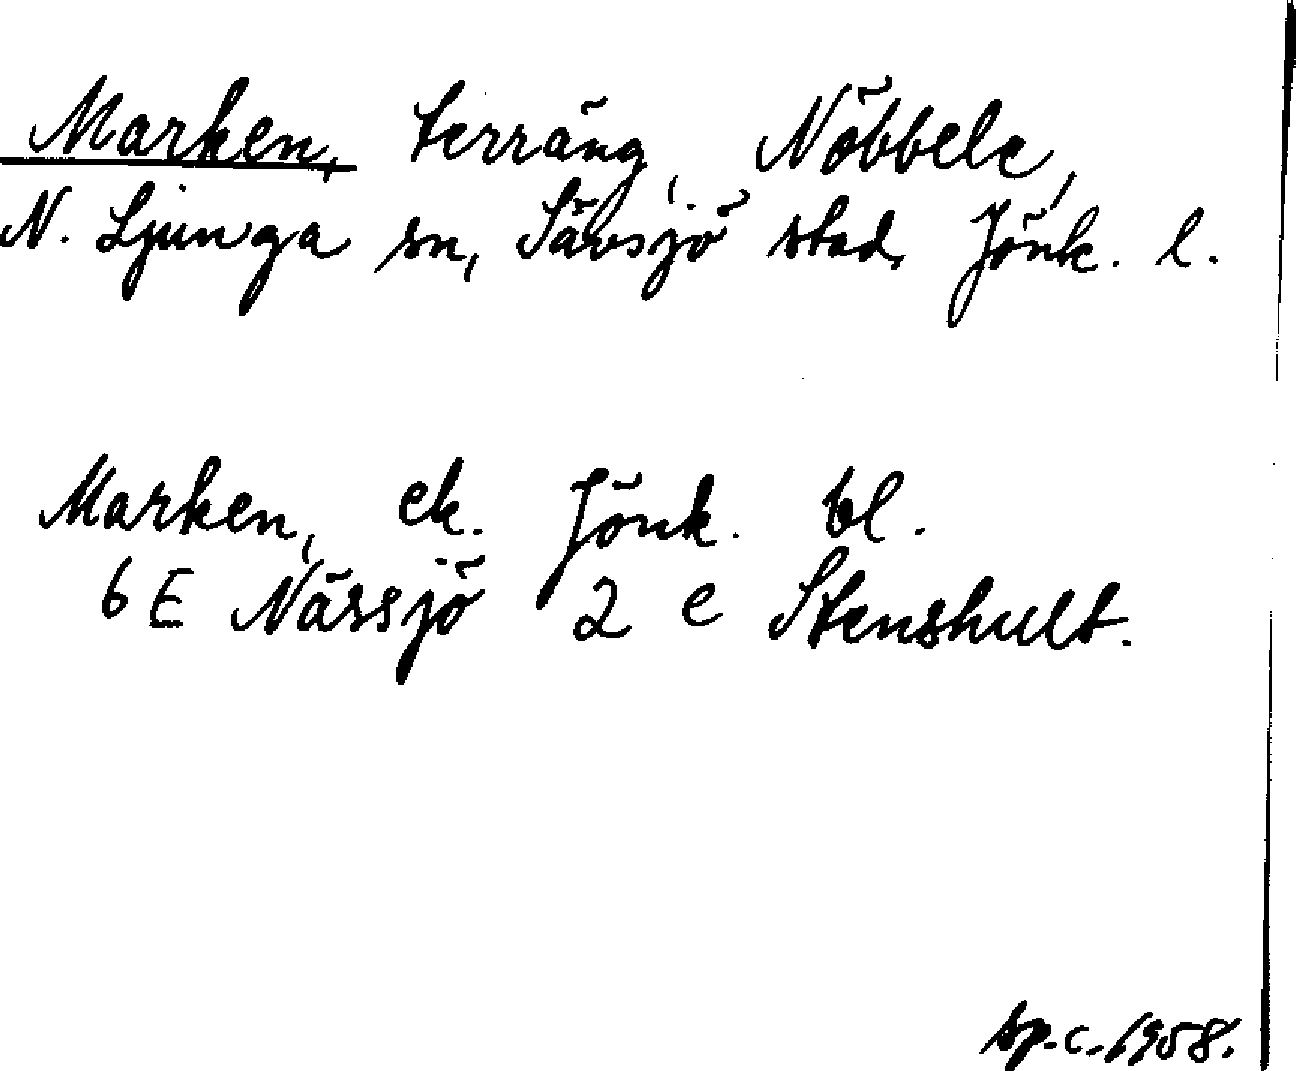 Marken, terräng, Nöbbele,
N. Ljunga sn, Sävsjö stad, Jönk. l.
Marken, ek. Jönk. bl.
6 E Nässjö 2 e Stenshult.
sp.c. 1958.